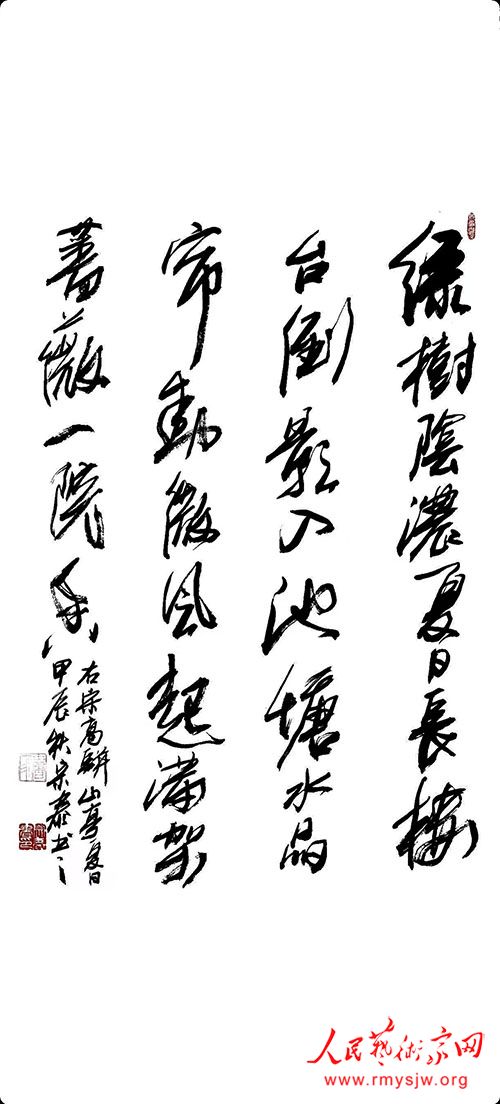 绿樹陰濃夏日長楼
台倒影入池塘水晶
帘動微风起满架
蔷薇一院香
右宋高駢山亭夏日
甲辰秋宋泰书之
人民藝術家网
www.rmysjw.org